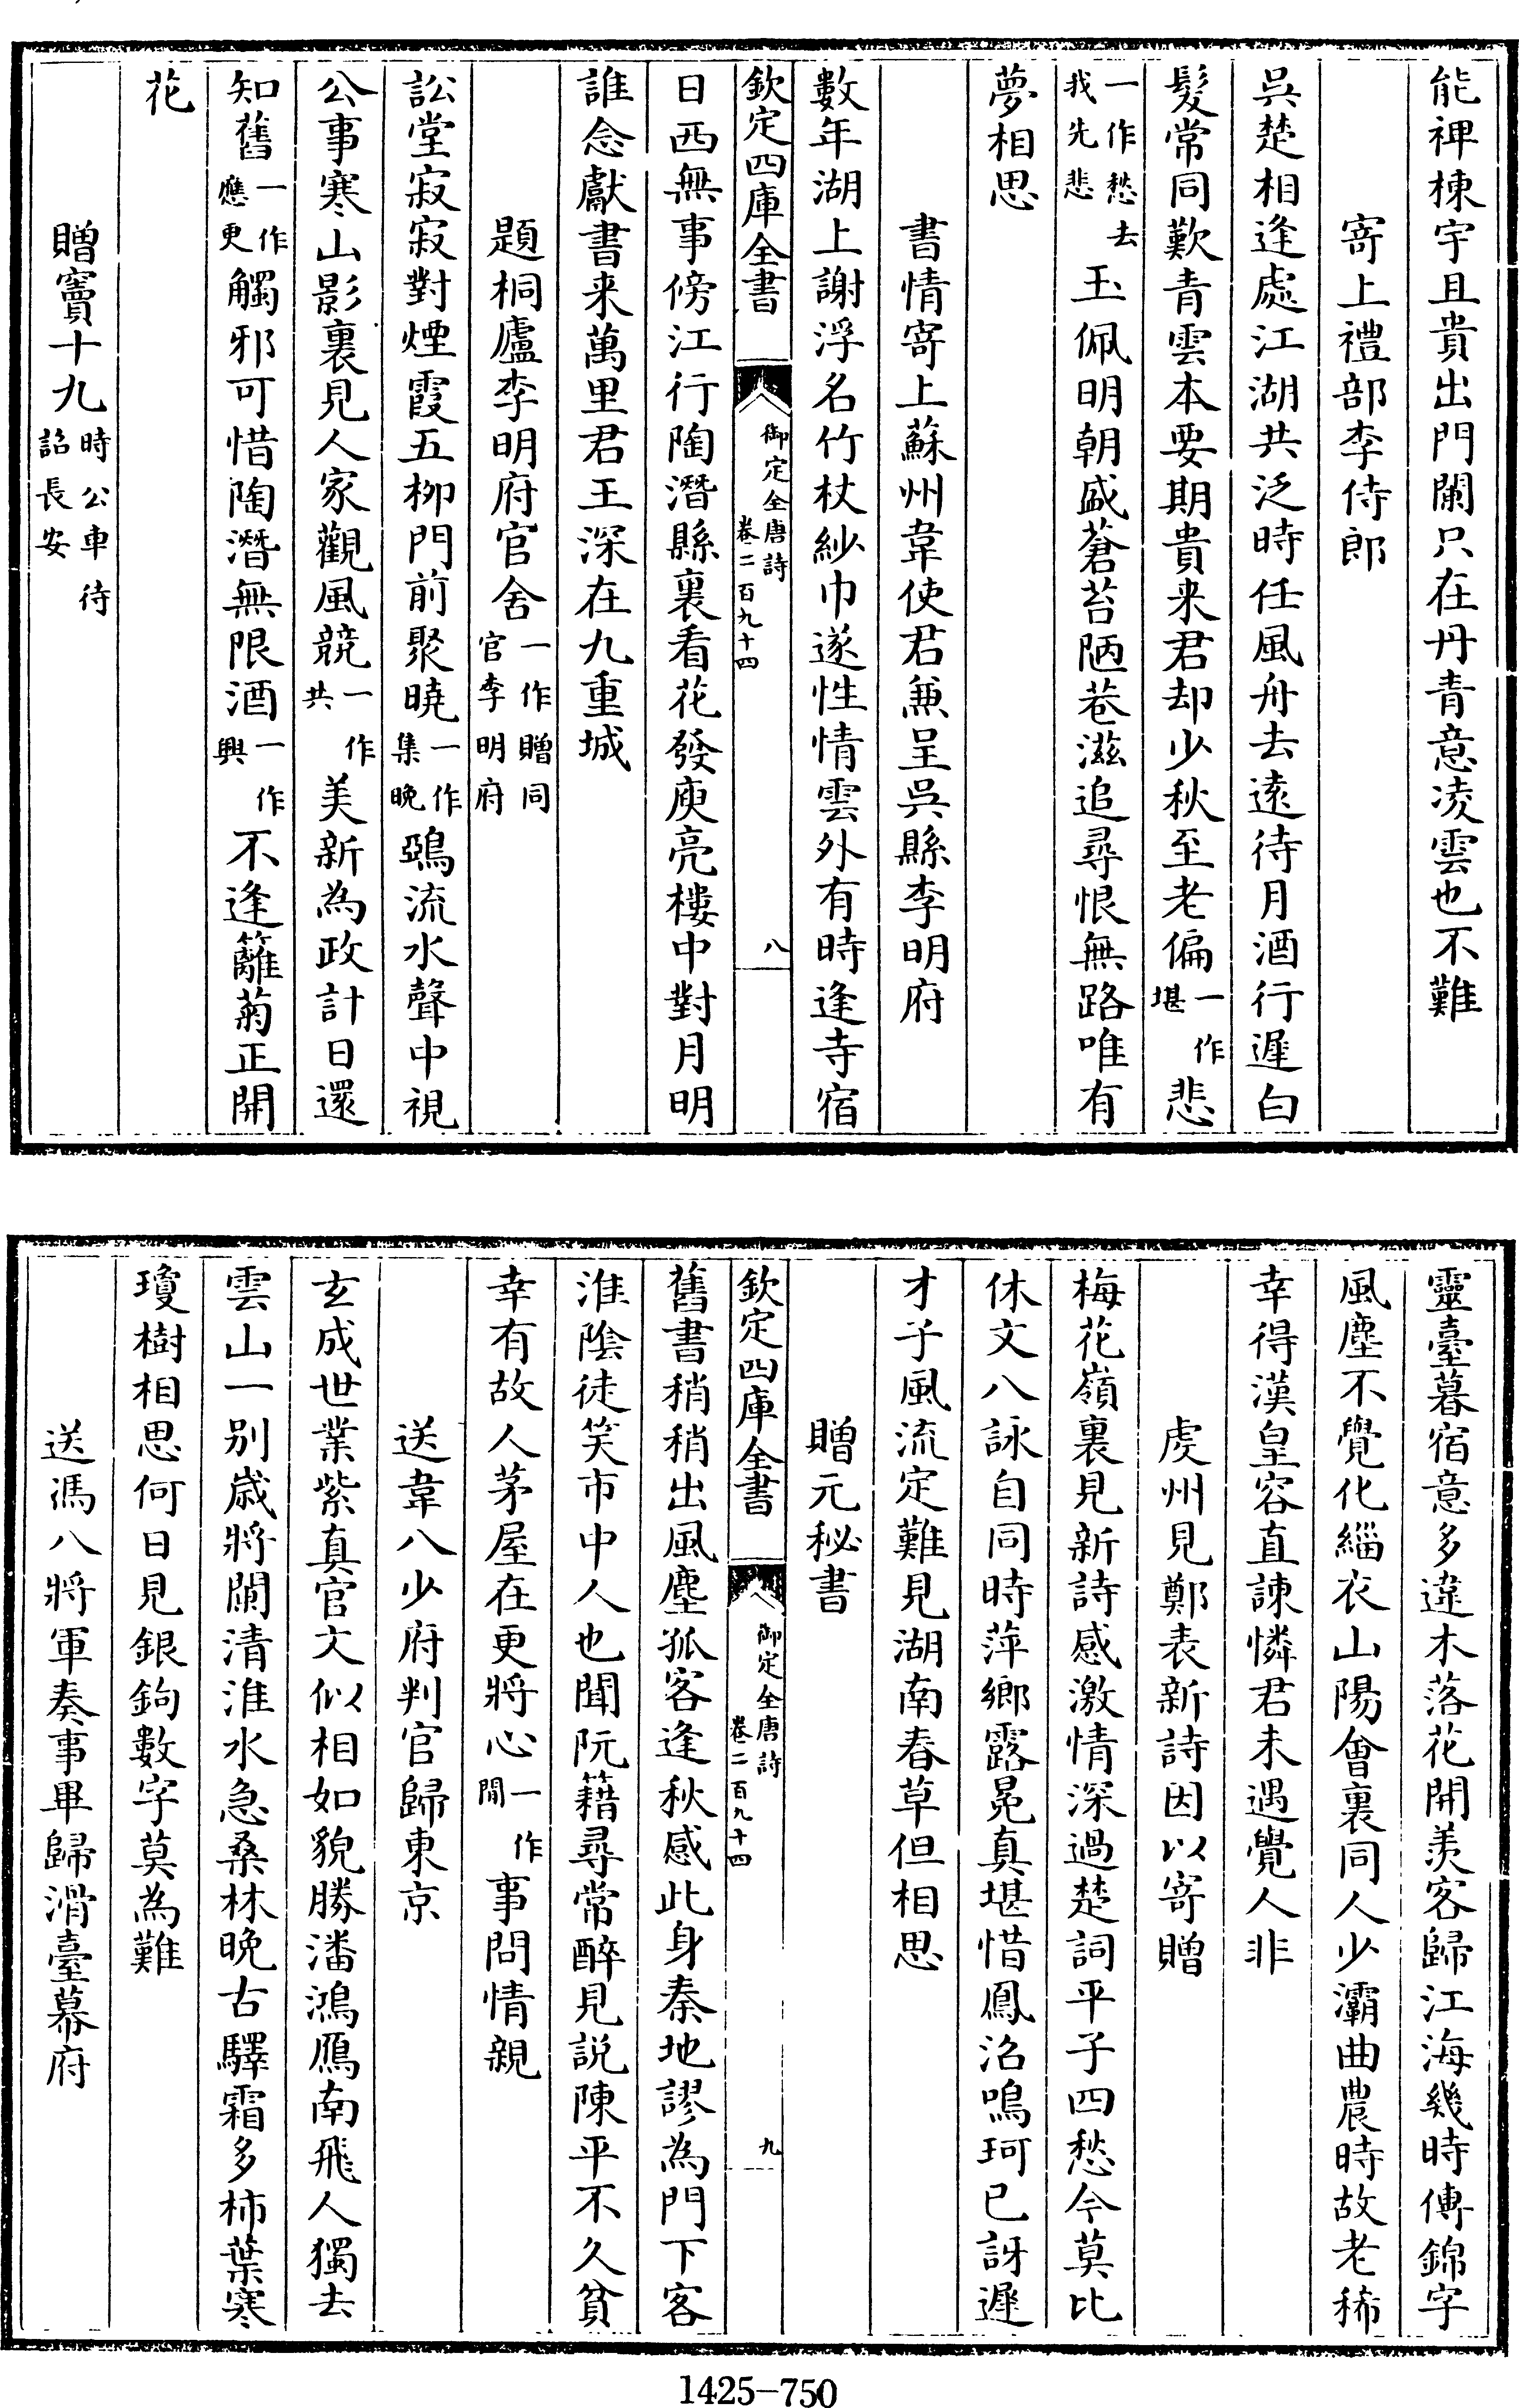 能裨棟宇且貴出門闌只在丹青意凌雲也不難
寄上禮部李侍郎
吳楚相逢處江湖共泛時任風舟去遠待月酒行遲白
髮常同歎青雲本要期貴来君却少秋至老偏一作堪悲
一作愁去我先悲玉佩明朝盛蒼苔陋巷滋追尋恨無路唯有
夢相思
書情寄上蘇州韋使君兼呈吳縣李明府
數年湖上謝浮名竹杖紗巾遂性情雲外有時逢寺宿
欽定四庫全書
御定全唐詩
卷二百九十四
八
日西無事傍江行陶潛縣裏看花發庾亮樓中對月明
誰念獻書来萬里君王深在九重城
題桐廬李明府官舍一作贈同官李明府
訟堂寂寂對煙霞五柳門前聚曉一作集晚鵶流水聲中視
公事寒山影裏見人家觀風競一作共美新為政計日還
知舊一作應更觸邪可惜陶潛無限酒一作興不逢籬菊正開
花
贈竇十九時公車待詔長安
靈臺暮宿意多違木落花開羨客歸江海幾時傳錦字
風塵不覺化緇衣山陽會裏同人少灞曲農時故老稀
幸得漢皇容直諫憐君未遇覺人非
虔州見鄭表新詩因以寄贈
梅花嶺裏見新詩感激情深過楚詞平子四愁今莫比
休文八詠自同時萍鄉露冕真堪惜鳳沼鳴珂已訝遲
才子風流定難見湖南春草但相思
贈元秘書
欽定四庫全書
御定全唐詩
卷二百九十四
九
舊書稍稍出風塵孤客逢秋感此身秦地謬為門下客
淮陰徒笑市中人也聞阮籍尋常醉見説陳平不久貧
幸有故人茅屋在更將心一作閒事問情親
送韋八少府判官歸東京
玄成世業紫真官文似相如貌勝潘鴻鴈南飛人獨去
雲山一別歲將闌清淮水急桑林晚古驛霜多柿葉寒
瓊樹相思何日見銀鉤數字莫為難
送馮八將軍奏事畢歸滑臺幕府
1425-750